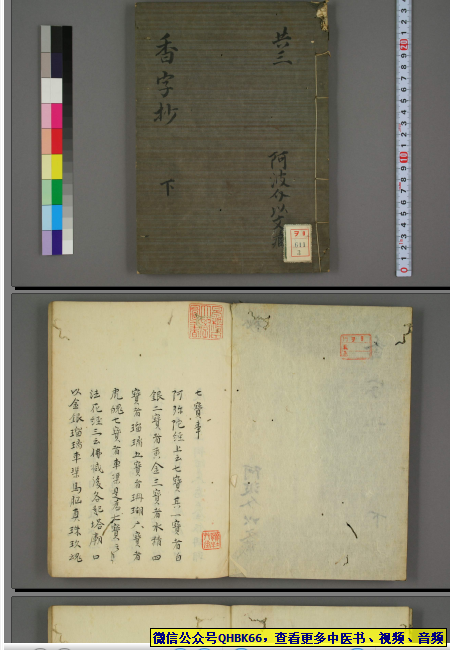 共三
阿波介以文
香字抄
下
七寳事
阿弥陀経上云七寳其一寳者白
銀二寳者黄金三寳者水精四
寳者瑠璃五寳者珊瑚六寳者
虎魄七寳者車渠是為七寳
法花経三云佛滅後各起塔廟
以金銀瑠璃車渠馬脳真珠玫瑰
微信公众号QHBK66，查看更多中医书、视频、音频